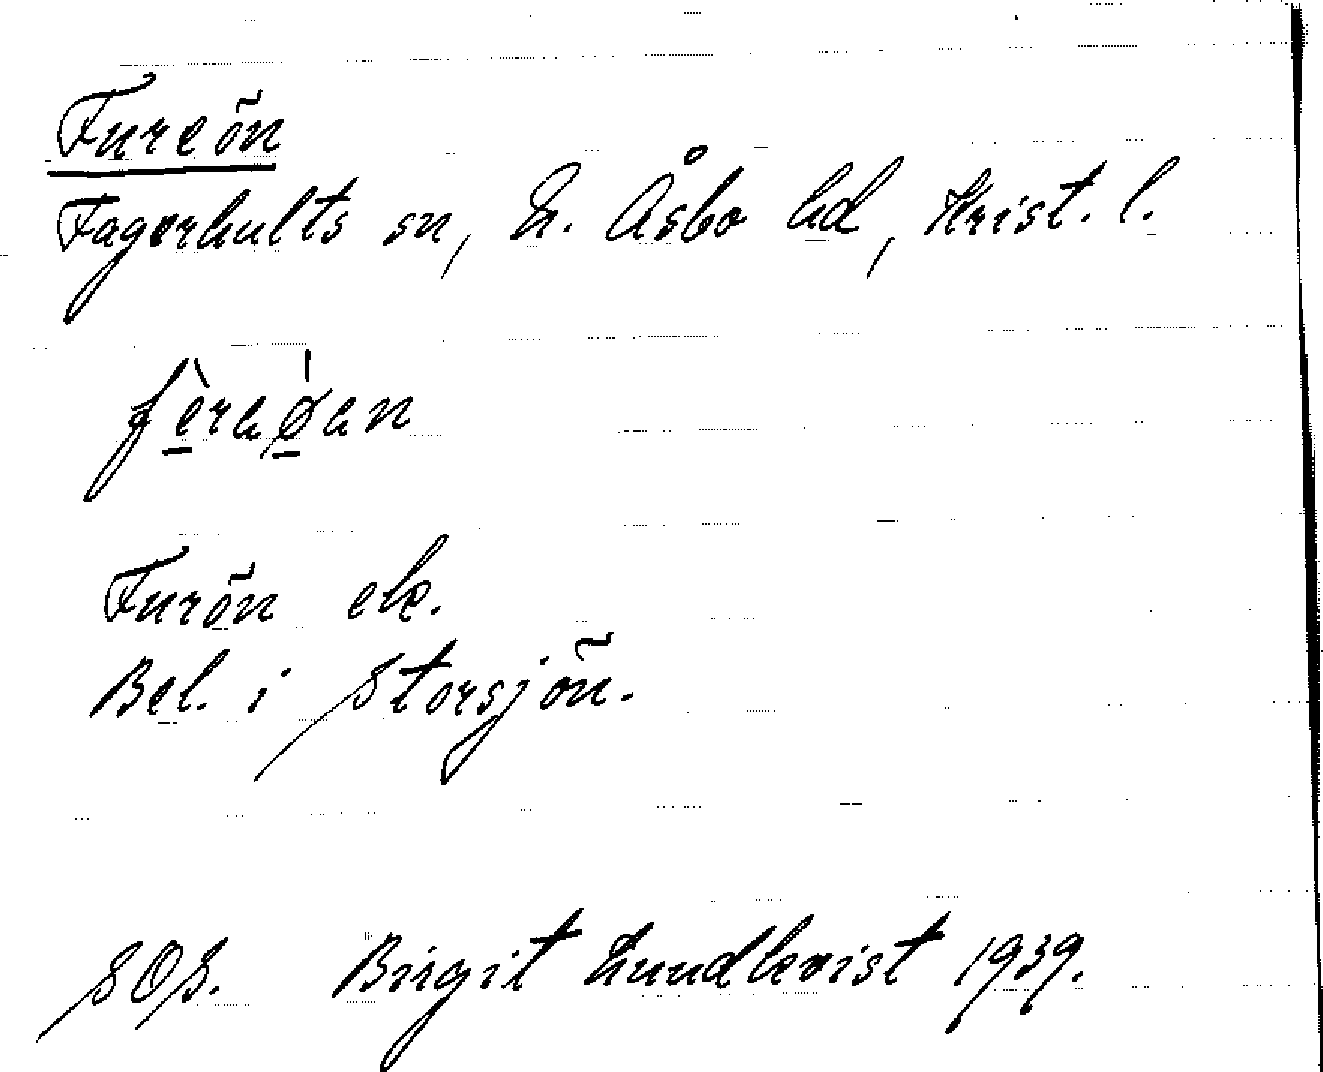 Fureön
Fagerhults sn, N. Åsbo hd, Krist. l.
Furön ek.
Bel. i Storsjön.
SOS. Birgit Lundkvist 1939.